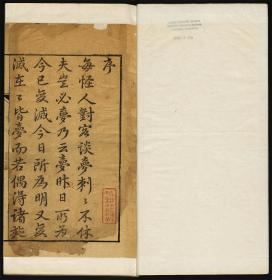 序
每怪人對客談夢刺〻不休
夫豈必夢乃云夢昨日所為
今已變滅今日所為明又變
滅在〻皆夢而若偶得諸